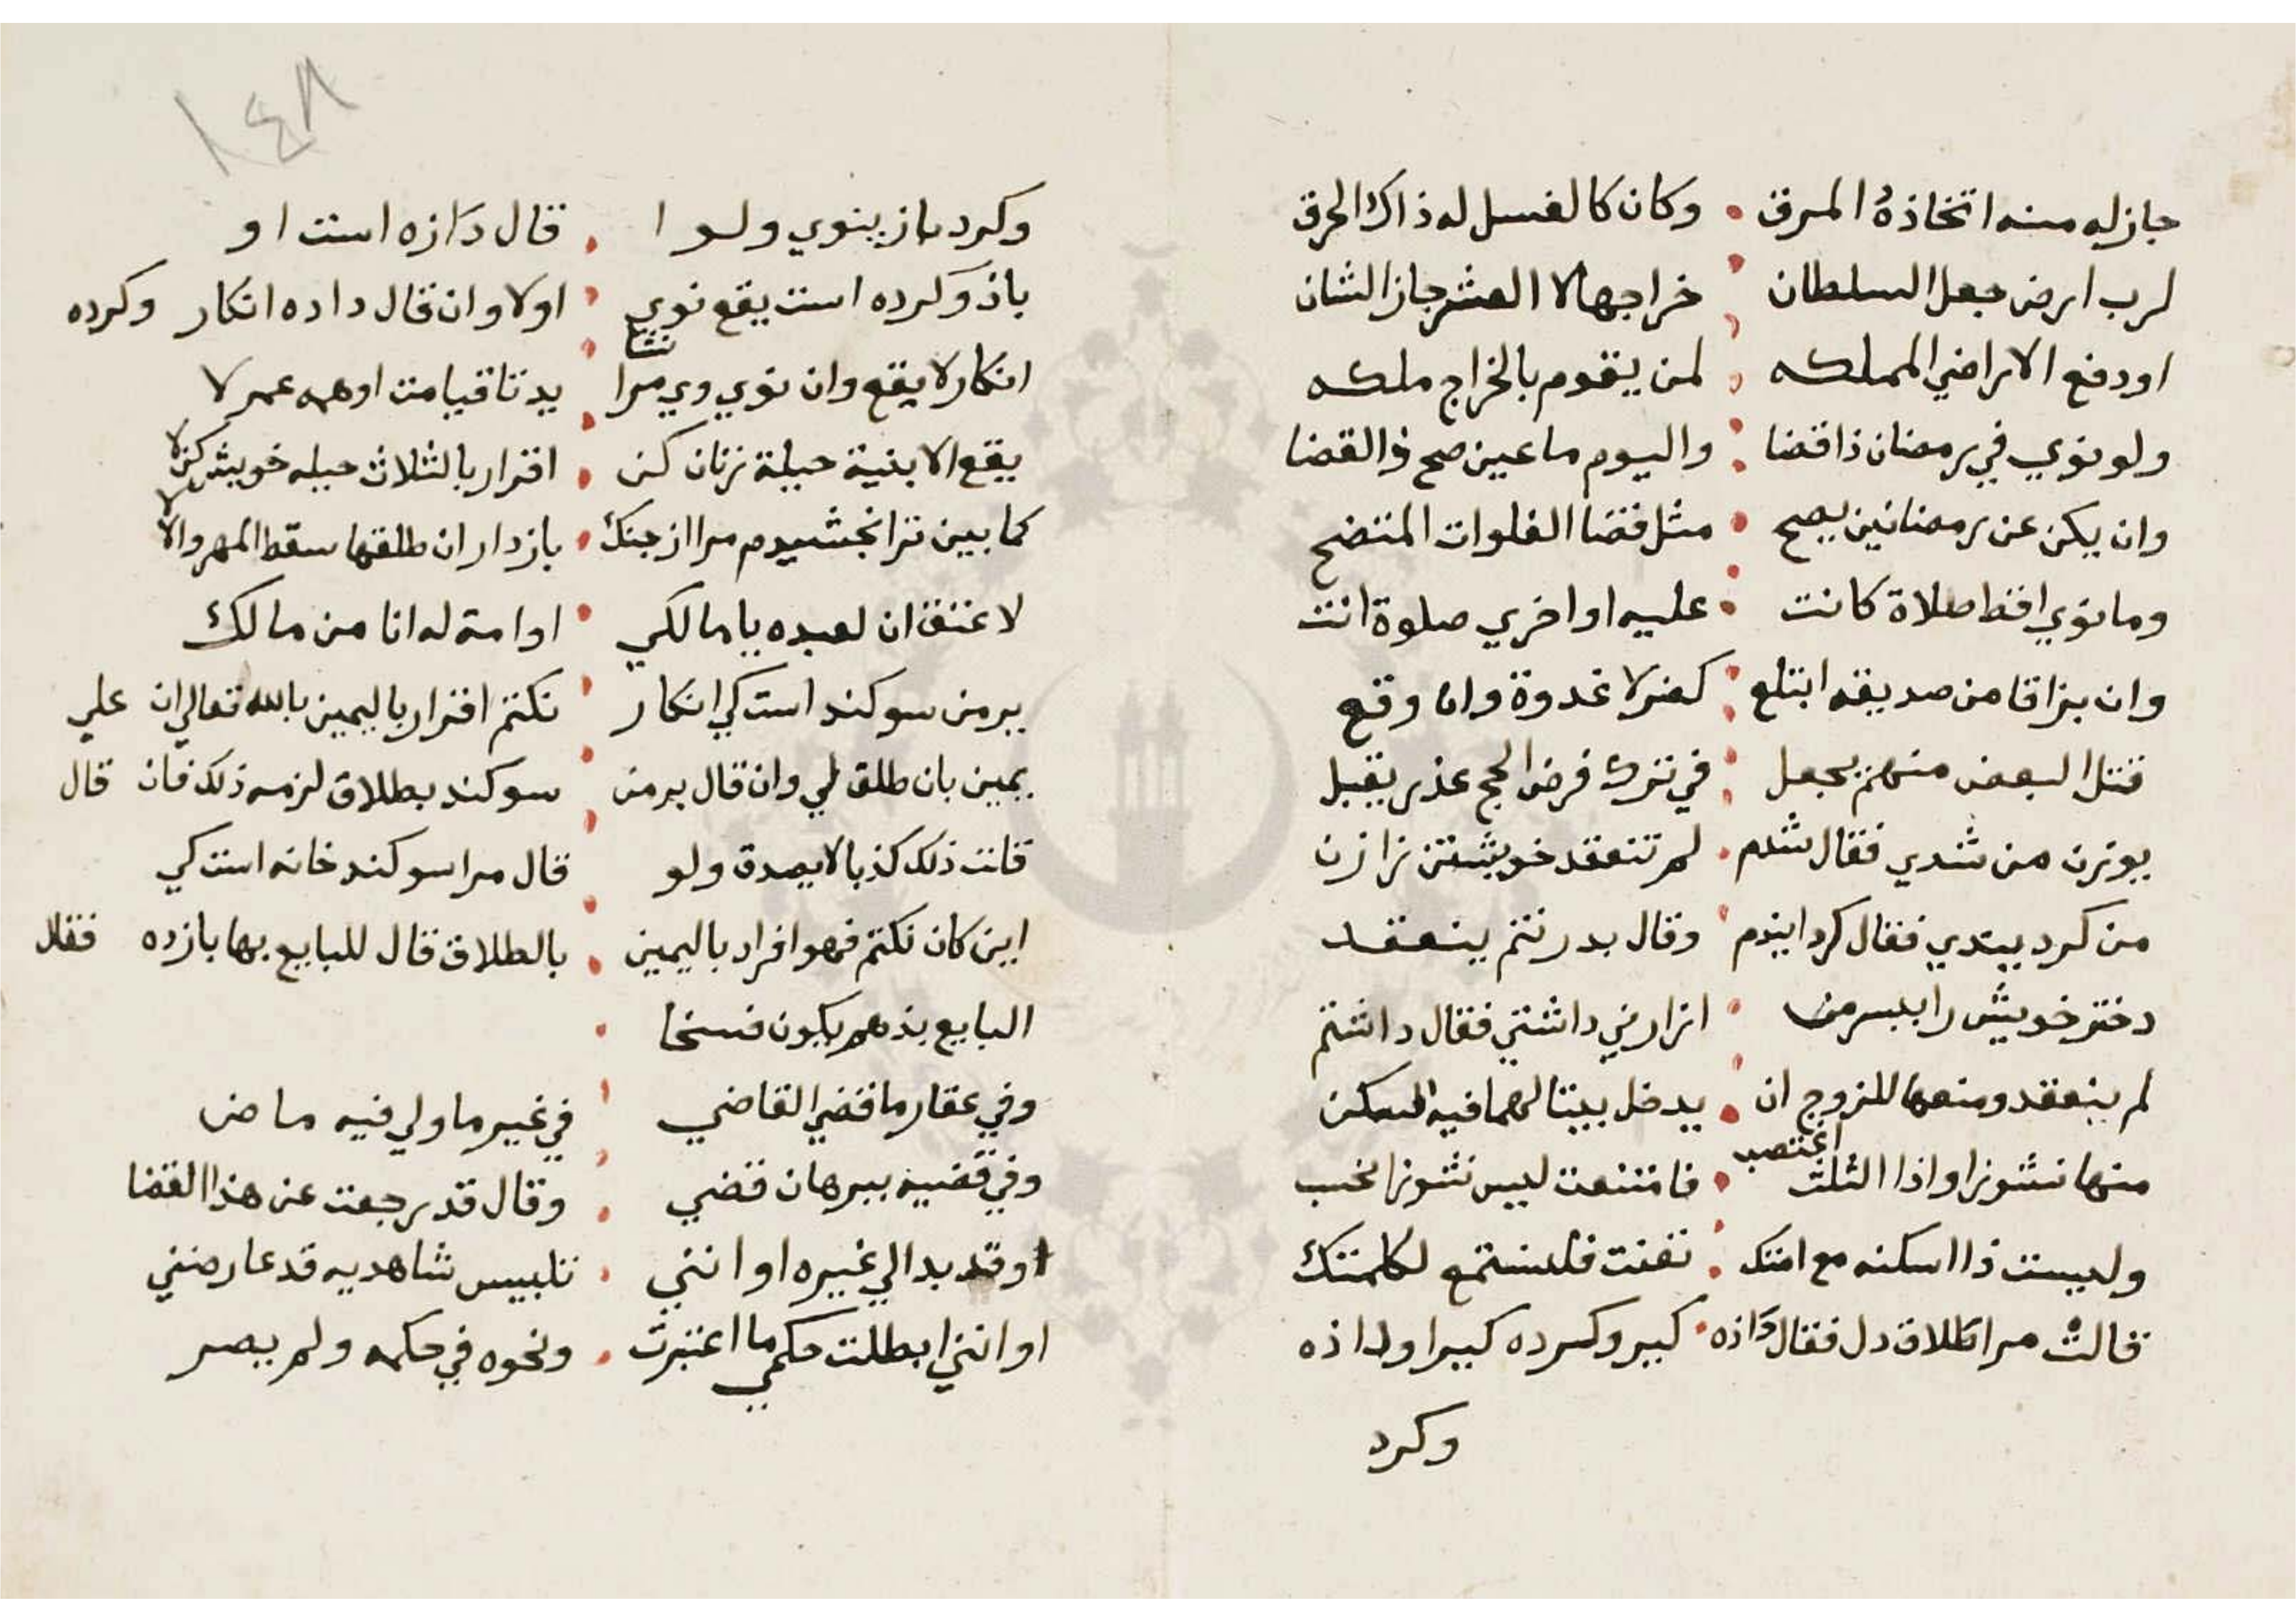 جاز له منه اتخاذه المرق وكان كالغسل له ذاك الحرق
لرب ارض جعل السلطان خراجها لا العشر جاز الشان
او دفع الاراضي المملكه لمن يقوم بالخراج ملكه
ولو نوي في رمضان ذا قضا واليوم ما عين صح ذالقضا
وان يكن عن رمضانين يصح مثل قضا الصلوات المتضح
وما نوي اقط صلاة كانت عليه او اخري صلوة انت
وان بزاقا من صديقه ابتلع كفر لا غدوة وان وقع
قتل البعض منهم يجعل في ترك فرض الحج عذر يقبل
بوزن من شدي فقال شدم لم تنعقد خويشتن ترا زن
من كرد يبتدي فقال كردايندم وقال بدرنتم ينعقد
دختر خويش را ببسر من ارزاني داشتي فقال داشتم
لم ينعقد ومنعها للزوج ان يدخل بيتا لهما فيه السكن
منها نشوز او اذا الثلث اغتصب فامتنعت ليس نشوز انحسب
وليست ذا اسكنه مع امتك نفنت فلستمع لكلمتك
قالت مرا طلاق دل فقال داذه كير وكرده كير او داذه
وكرد
١٤٨
وكرد باز ينوي ولو ا قال دازه است او
باذ وكرده است يقع نوي اولا وان قال داده انكار وكرده
انكار لا يقع وان نوي وي مرا نشا يد تا قيامت او همه عمر لا
يقع الا بنية حيلة زنان كن اقرار بالثلاث حيله خويش كن لا
كما بين ترا بخشيدم مرا از جنك باز دار ان طلقها سقط المهر والا لا
لا عتق ان لعبده يا مالكي او امته له انا من مالك
بر من سوكند است كي انكار نكنم اقرار باليمين بالله تعالي ان علي
يمين بان طلق لي وان قال بر من سوكند بطلاق لزمه ذلك فان قال
قلت ذلك كذبا لا يصدق ولو قال مرا سوكند خانه است كي
اين كان نكنم فهو اقرار باليمين بالطلاق قال للبايع بها بازده فقال
البايع بذهم يكون فسخا
وفي عقار ما قضي القاضي في غير ما ولي فيه ماض
وفي قضيه ببرهان قضي وقال قد رجعت عن هذا القضا
او قد بدا لي غيره او انني تلبيس شاهديه قد عارضني
او انني ابطلت حكمي ما اعتبرت ونحوه في حكمه ولم يصر